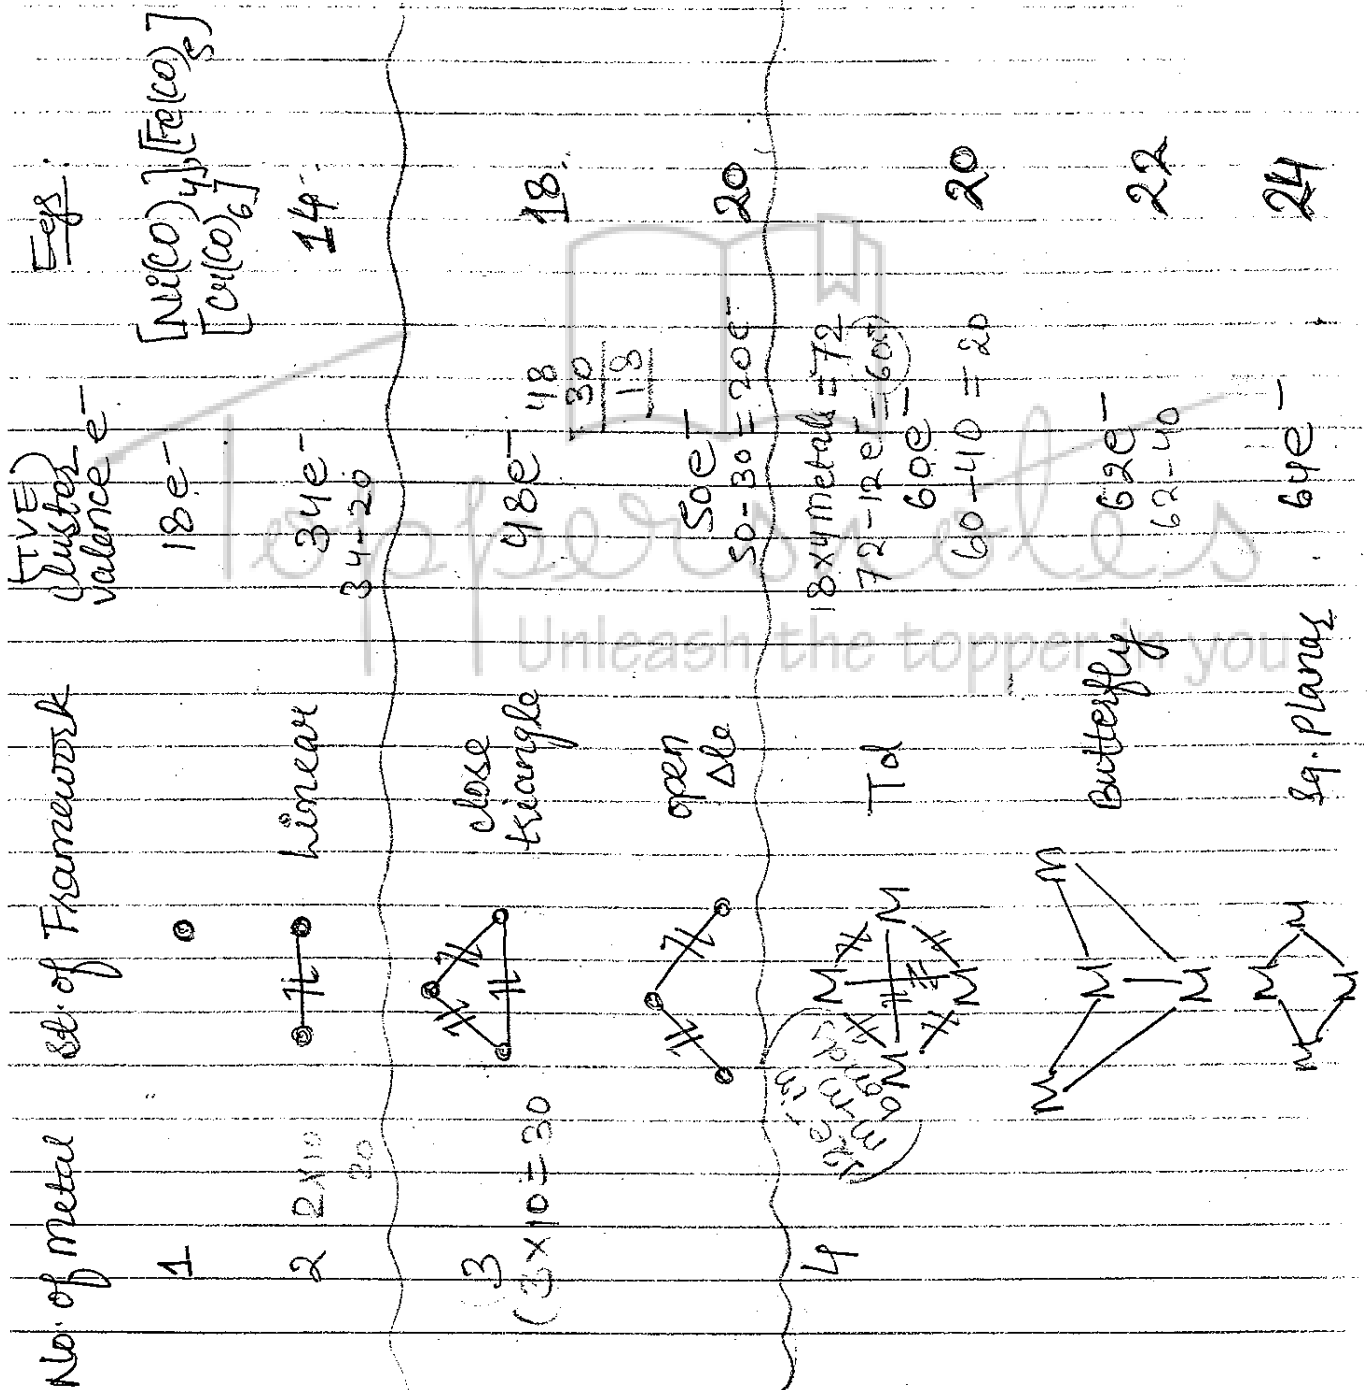 No. of Metal St. of Framework (TVE) Cluster valence e⁻ Egs.
1 18e⁻ [Ni(CO)₄], [Fe(CO)₅]
[Cr(CO)₆]
2 2×10 Linear 34e⁻ 14
20 34-20
3 close triangle 48e⁻ 48 18
(3×10=30 30
18
open Δle 50e⁻ 20
50-30=20e⁻
4 M M M M Td 18×4 metals=72
72-12e⁻=60e⁻
60e⁻
60-40=20 20
M M M M Butterfly 62e⁻ 22
62-40
M M M M Sq. planar 64e⁻ 24
Toppersnotes
Unleash the topper in you